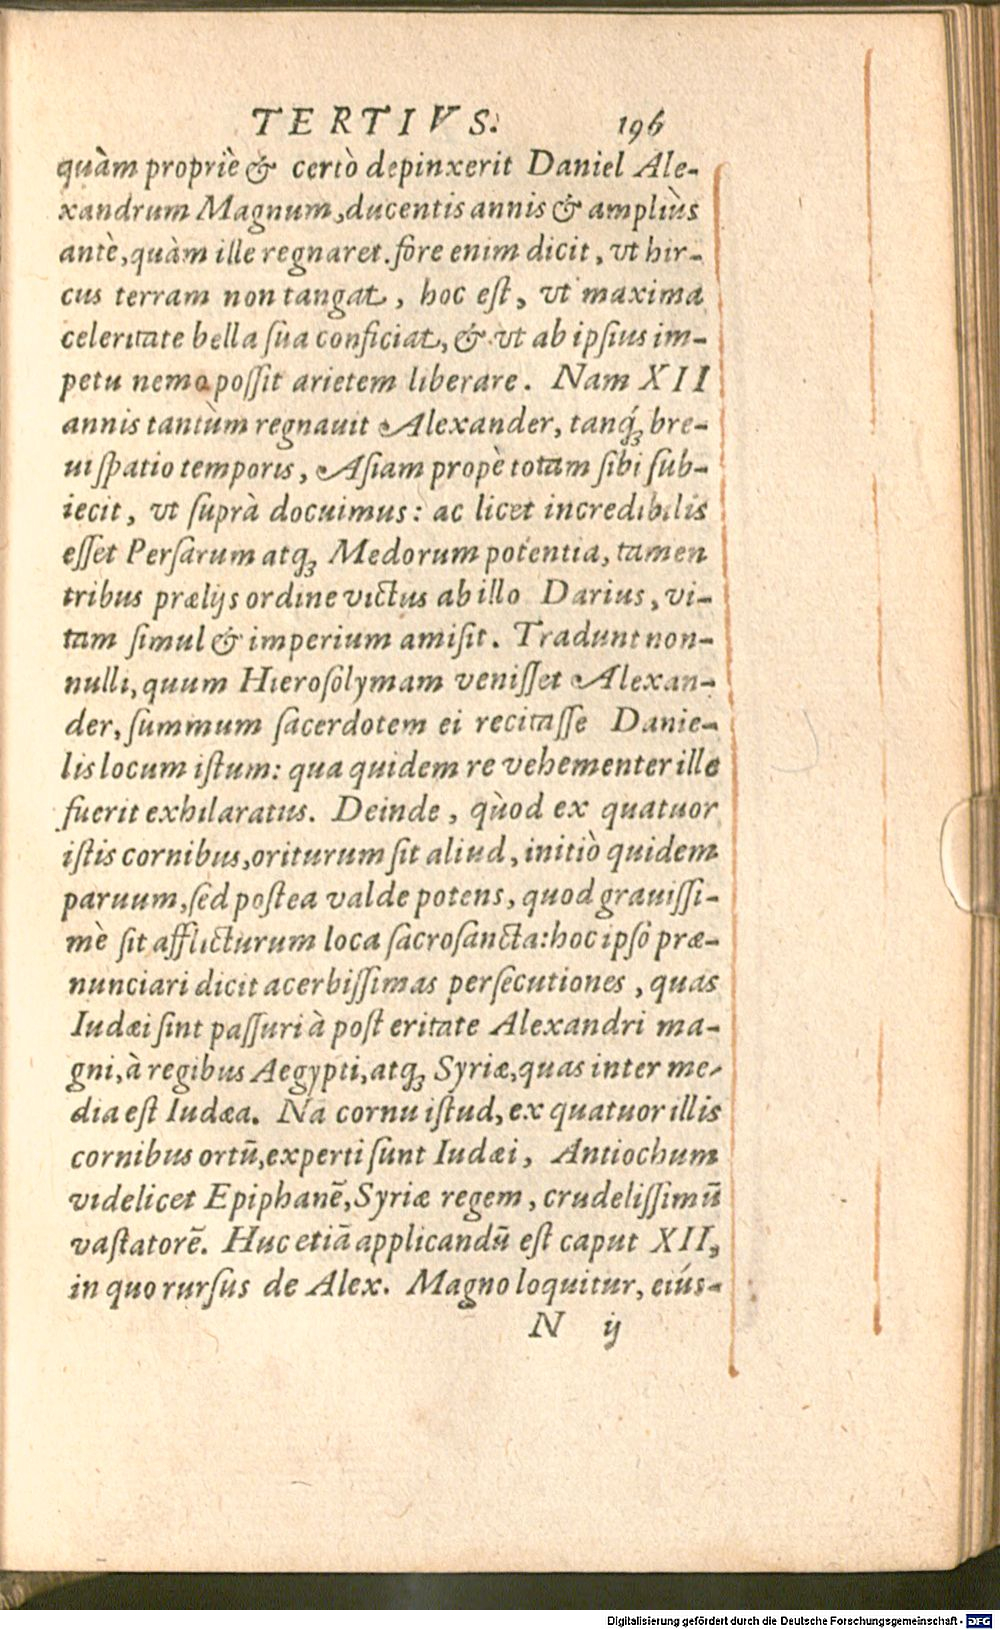 TERTIVS. 196
quàm propriè & certò depinxerit Daniel Ale-
xandrum Magnum, ducentis annis & ampliùs
antè, quàm ille regnaret. fore enim dicit, vt hir-
cus terram non tangat, hoc eſt, vt maxima
celeritate bella ſua conficiat, & vt ab ipſius im-
petu nemo poſſit arietem liberare. Nam XII
annis tantùm regnauit Alexander, tanq́ꝫ bre-
ui ſpatio temporis, Aſiam propè totam ſibi ſub-
iecit, vt ſuprà docuimus: ac licet incredibilis
eſſet Perſarum atqꝫ Medorum potentia, tamen
tribus prælijs ordine victus ab illo Darius, vi-
tam ſimul & imperium amiſit. Tradunt non-
nulli, quum Hieroſolymam veniſſet Alexan-
der, ſummum ſacerdotem ei recitaſſe Danie-
lis locum iſtum: qua quidem re vehementer ille
fuerit exhilaratus. Deinde, quòd ex quatuor
iſtis cornibus, oriturum ſit aliud, initiò quidem
paruum, ſed poſtea valde potens, quod grauiſſi-
mè ſit afflicturum loca ſacroſancta: hoc ipſo præ-
nunciari dicit acerbiſſimas perſecutiones, quas
Iudæi ſint paſſuri à poſteritate Alexandri ma-
gni, à regibus Aegypti, atqꝫ Syriæ, quas inter me-
dia eſt Iudæa. Nā cornu iſtud, ex quatuor illis
cornibus ortū, experti ſunt Iudæi, Antiochum
videlicet Epiphanē, Syriæ regem, crudeliſſimū
vaſtatorē. Huc etiā applicandū eſt caput XII,
in quo rurſus de Alex. Magno loquitur, eiús-
N ij
Digitalisierung gefördert durch die Deutsche Forschungsgemeinschaft - DFG